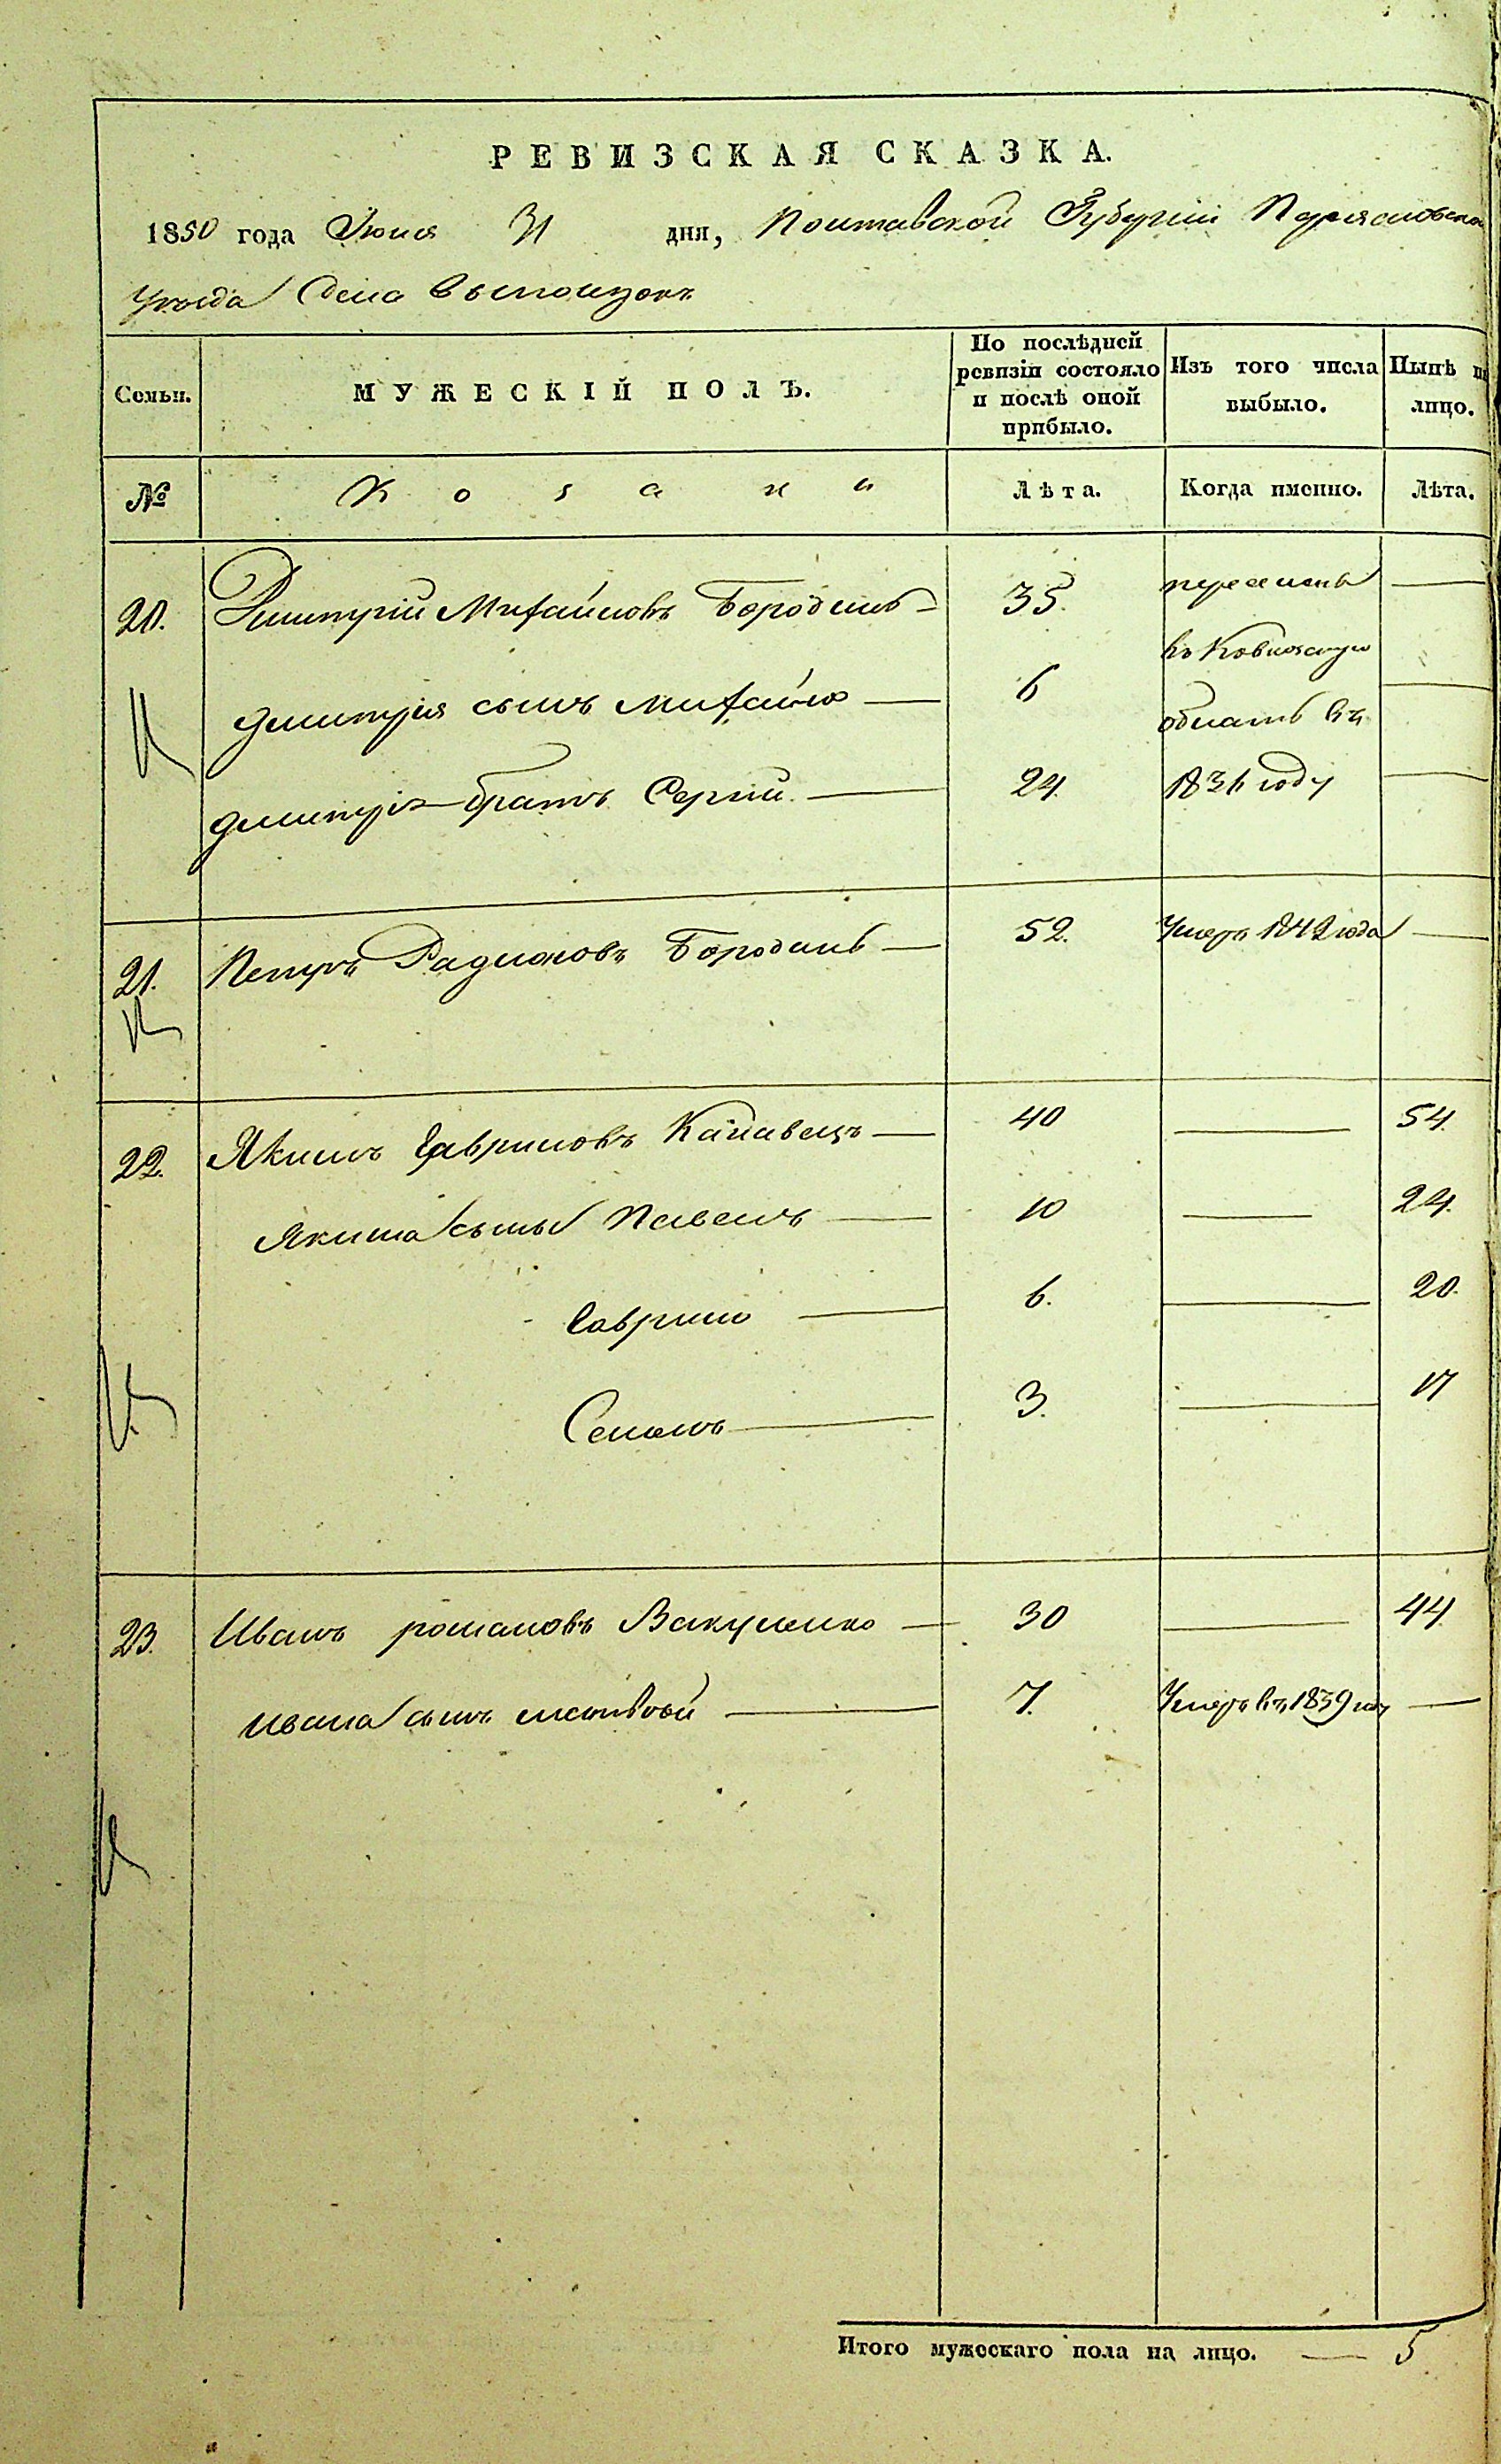 РЕВИЗСКАЯ СКАЗКА.
1850 года Июня 31 дня, Полтавской Губерніи Переясловска
Уезда Села
Семьи. МУЖЕСКІЙ ПОЛЪ. По послѣдней ревизіи состояло и послѣ оной прибыло. Изъ того числа выбыло. Нынѣ на лицо.
№ Козаки Лѣта. Когда именно. Лѣта.
20. Дмитрій Михайловъ Бородань — 35. переселенъ —
въ Кавказскую
Дмитрія сынъ Михайло — 6 область въ —
Дмитрія братъ Сергій — 24. 1836 году —
21. Петръ Радионовъ Бородань — 52. Умеръ 1842 года —
22. Якимъ Гавриловъ Канавецъ — 40 — 54.
Якима сыны Павелъ — 10 — 24.
Гаврило — 6. — 20.
Семенъ — 3. — 17
23. Иванъ Романовъ Вакуленко — 30 — 44.
Ивана сынъ Матвѣй — 7. Умеръ въ 1839 году —
Итого мужескаго пола на лицо. — 5